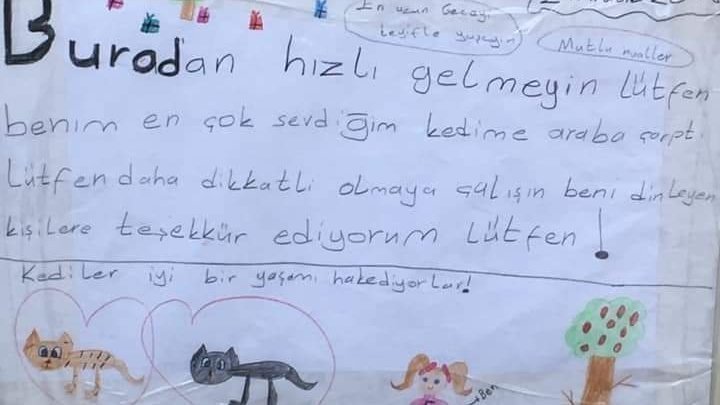 En uzun Geceyi
keyifle yaşayın
Mutlu
Buradan hızlı gelmeyin lütfen
benim en çok sevdiğim kedime araba çarptı.
Lütfen daha dikkatli olmaya çalışın beni dinleyen
kişilere teşekkür ediyorum lütfen!
Kediler iyi bir yaşamı hakediyorlar!
Ben